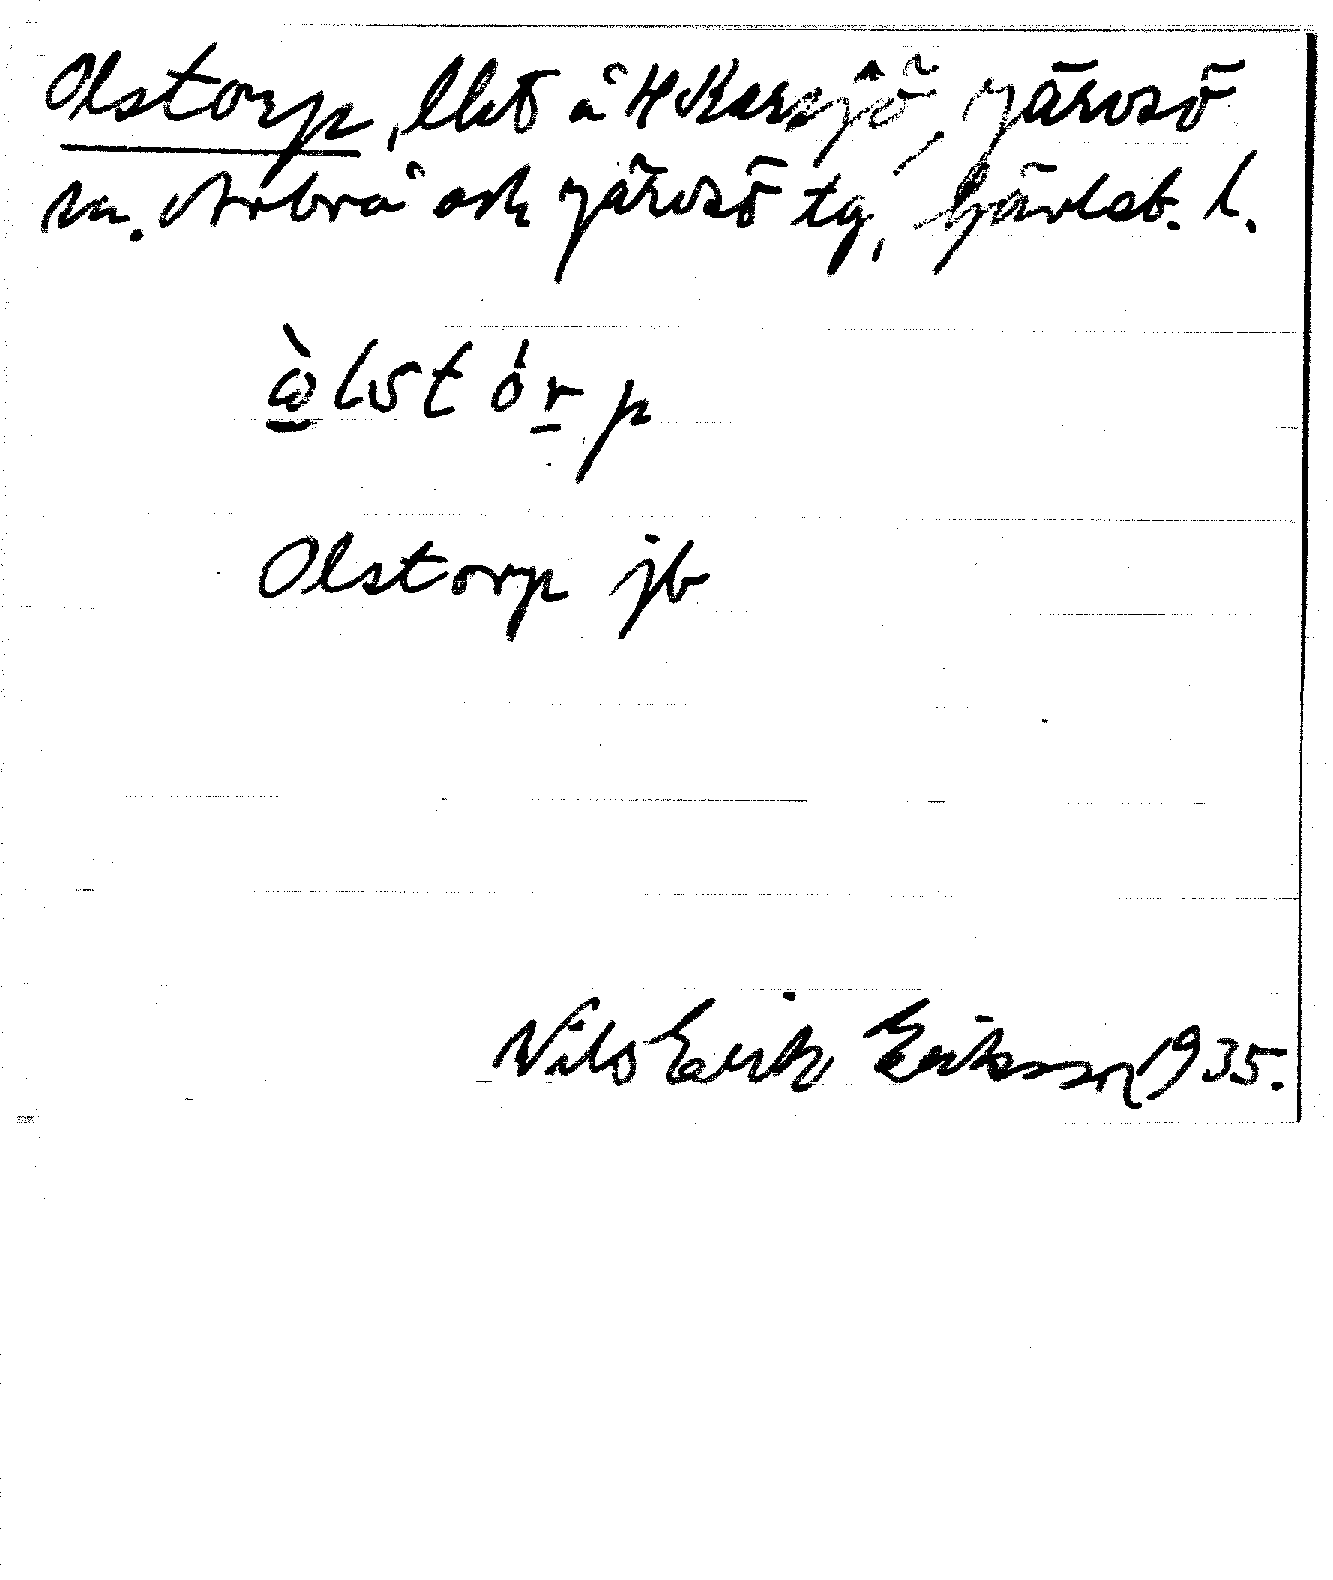 Olstorp, å 4 Karsjö, Järvsö
sn. Arbrå och Järvsö tg, Gävleb. l.
ὼlstórp
Olstorp jb
Nils Erik Eriksson 1935.